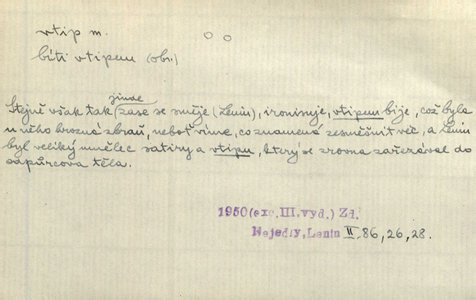 vtip m.
bíti vtipem (obr.)
jinde
Stejně však tak zase se směje (Lenin), ironisuje, vtipem bije, což byla
u něho hrozná zbraň, neboť víme, co znamená zesměšnit věc, a Lenin
byl veliký umělec satiry a vtipu, který se zrovna zařezával do
odpůrcova těla.
1950 (exc. III. vyd.) Zd.
Nejedlý, Lenin II. 86, 26, 28.